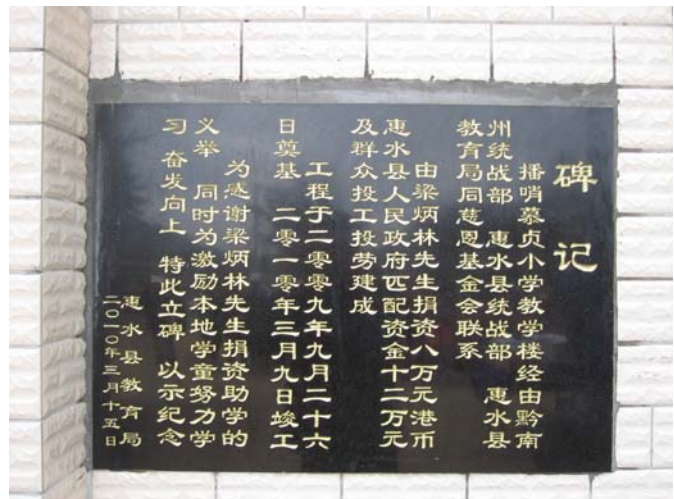 碑记
播哨慕贞小学教学楼经由黔南
州统战部 惠水县统战部 惠水县
教育局同慈恩基金会联系
由梁炳林先生捐资八万元港币
惠水县人民政府匹配资金十二万元
及群众投工投劳建成
工程于二零零九年九月二十六
日奠基 二零一零年三月九日竣工
为感谢梁炳林先生捐资助学的
义举 同时为激励本地学童努力学
习 奋发向上 特此立碑 以示纪念
惠水县教育局
二〇一〇年三月十五日